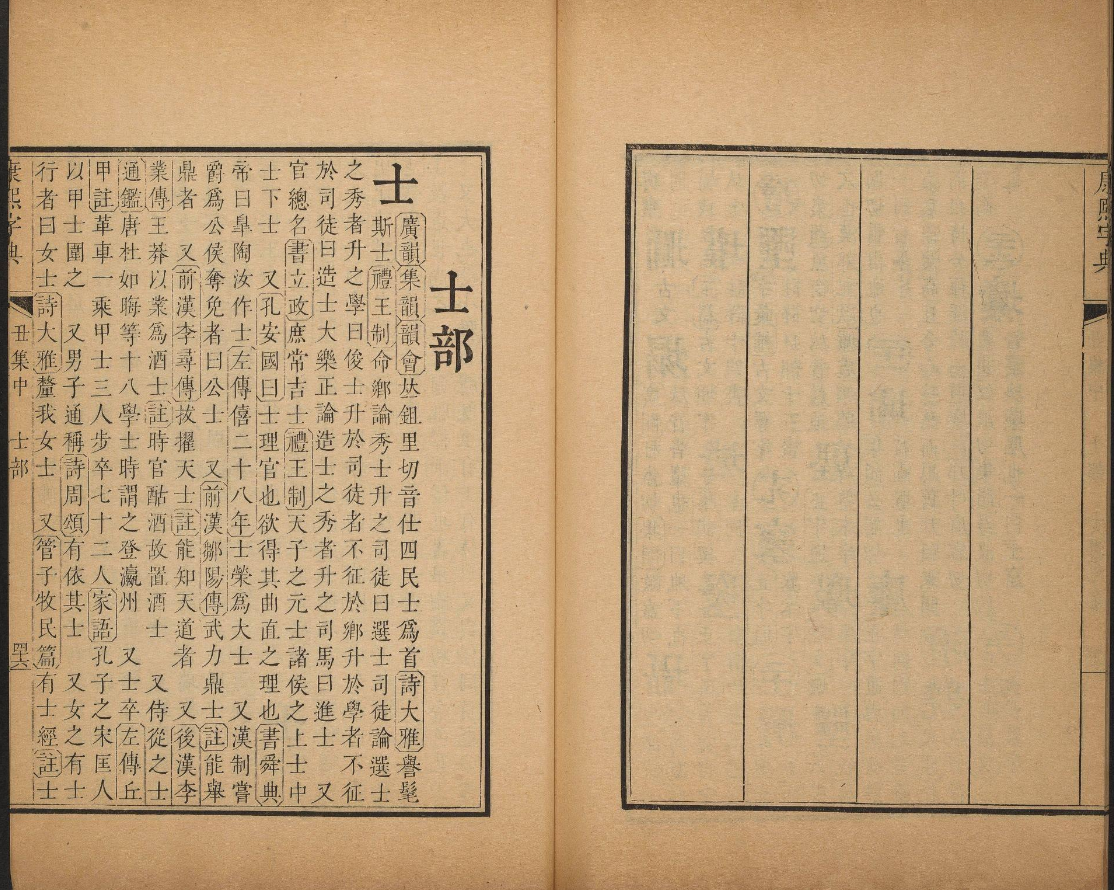 康熙字典
士部
士
廣韻集韻韻會𠀤鉏里切音仕四民士爲首詩大雅譽髦
斯士禮王制命鄕論秀士升之司徒曰選士司徒論選士
之秀者升之學曰俊士升於司徒者不征於鄕升於學者不征
於司徒曰造士大樂正論造士之秀者升之司馬曰進士 又
官總名書立政庶常吉士禮王制天子之元士諸侯之上士中
士下士 又孔安國曰士理官也欲得其曲直之理也書舜典
帝曰臯陶汝作士左傳僖二十八年士榮爲大士 又漢制嘗
爵爲公侯奪免者曰公士 又前漢鄒陽傳武力鼎士註能舉
鼎者 又前漢李尋傳拔擢天士註能知天道者 又後漢李
業傳王莽以業爲酒士註時官酤酒故置酒士 又侍從之士
通鑑唐杜如晦等十八學士時謂之登瀛州 又士卒左傳丘
甲註革車一乘甲士三人步卒七十二人家語孔子之宋匡人
以甲士圍之 又男子通稱詩周頌有依其士 又女之有士
行者曰女士詩大雅釐我女士 又管子牧民篇有士經註士
康熙字典 丑集中 士部 四六